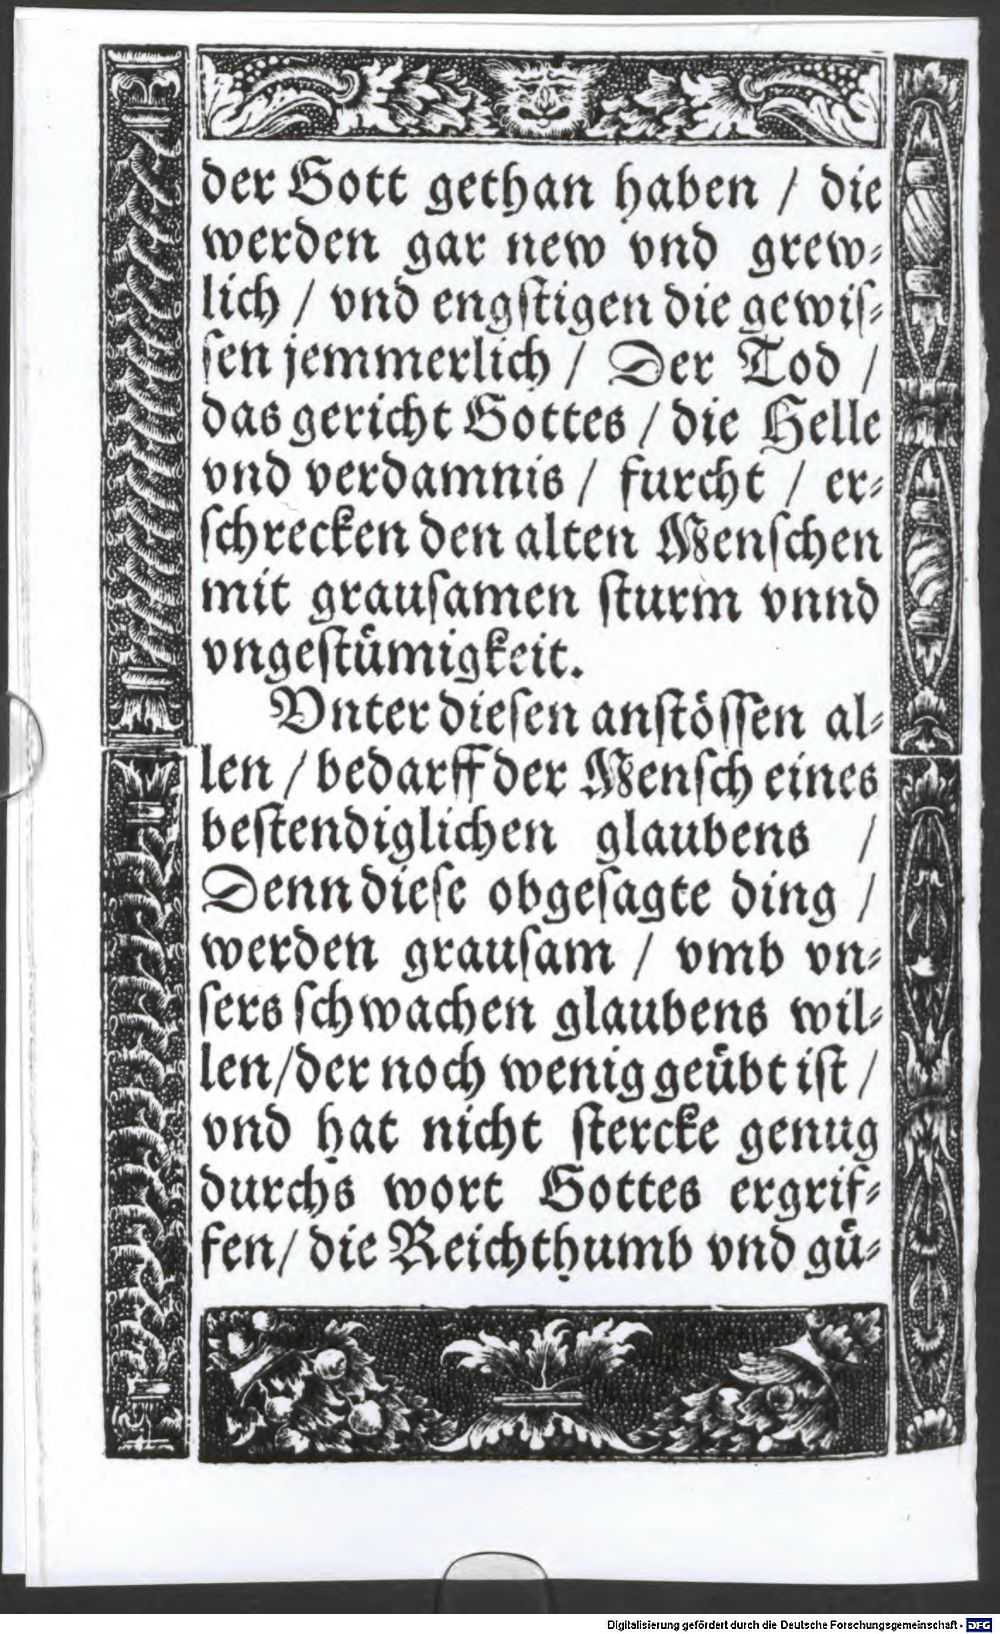 der Gott gethan haben / die
werden gar new vnd grew⸗
lich / vnd engſtigen die gewiſ⸗
ſen jemmerlich / Der Tod /
das gericht Gottes / die Helle
vnd verdamnis / furcht / er⸗
ſchrecken den alten Menſchen
mit grauſamen ſturm vnnd
vngeſtuͤmigkeit.
Vnter dieſen anſtoͤſſen al⸗
len / bedarff der Menſch eines
beſtendiglichen glaubens /
Denn dieſe obgeſagte ding /
werden grauſam / vmb vn⸗
ſers ſchwachen glaubens wil⸗
len / der noch wenig geuͤbt iſt /
vnd hat nicht ſtercke genug
durchs wort Gottes ergrif⸗
fen / die Reichthumb vnd guͤ⸗
Digitalisierung gefördert durch die Deutsche Forschungsgemeinschaft - DFG